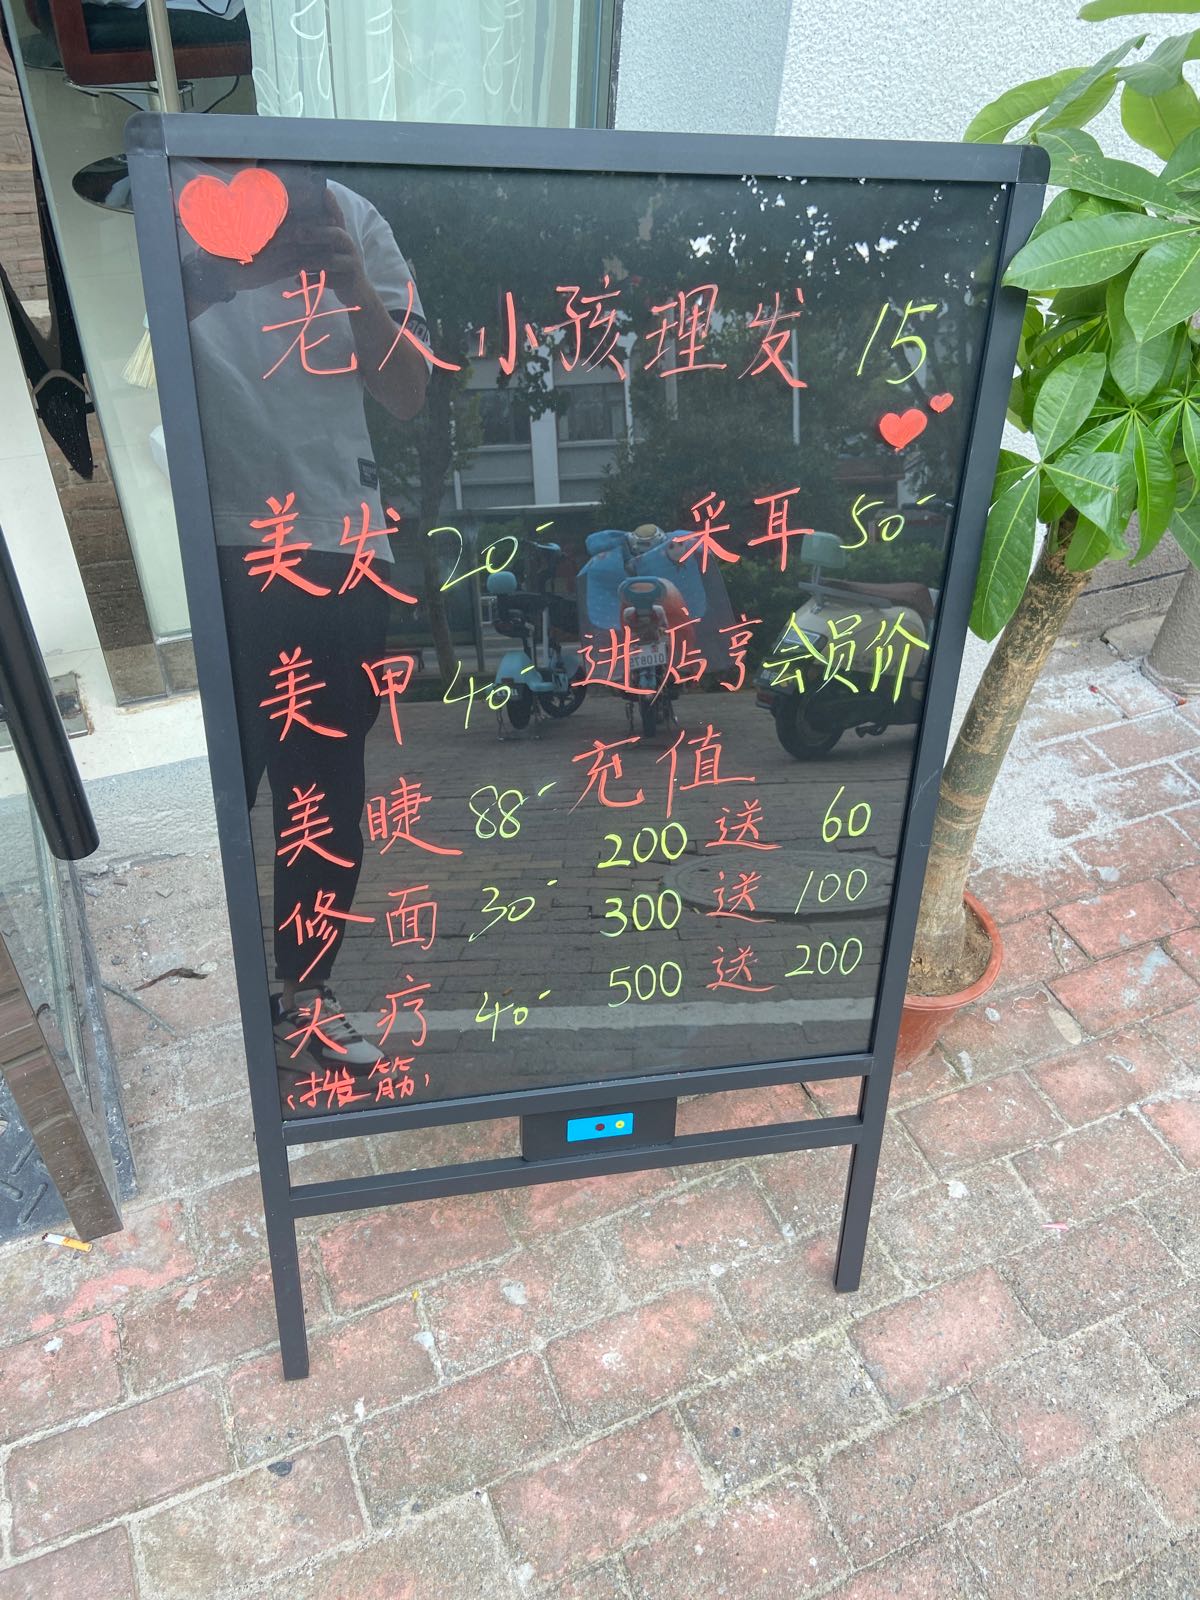 老人小孩理发 15
美发 20-
采耳 50-
美甲 40-
进店享会员价
充值
美睫 88-
200 送 60
修面 30-
300 送 100
头疗 40-
500 送 200
(拨筋)